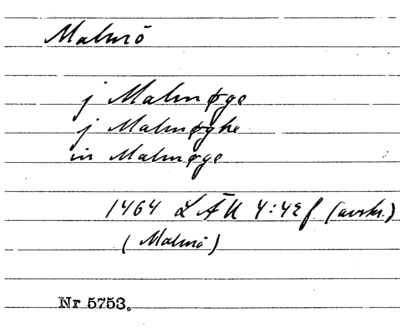 Malmö
j Malmøge
j Malmøghe
in Malmøge
1464 LÄU 4:42 f. (avskr.)
(Malmö)
Nr 5753.